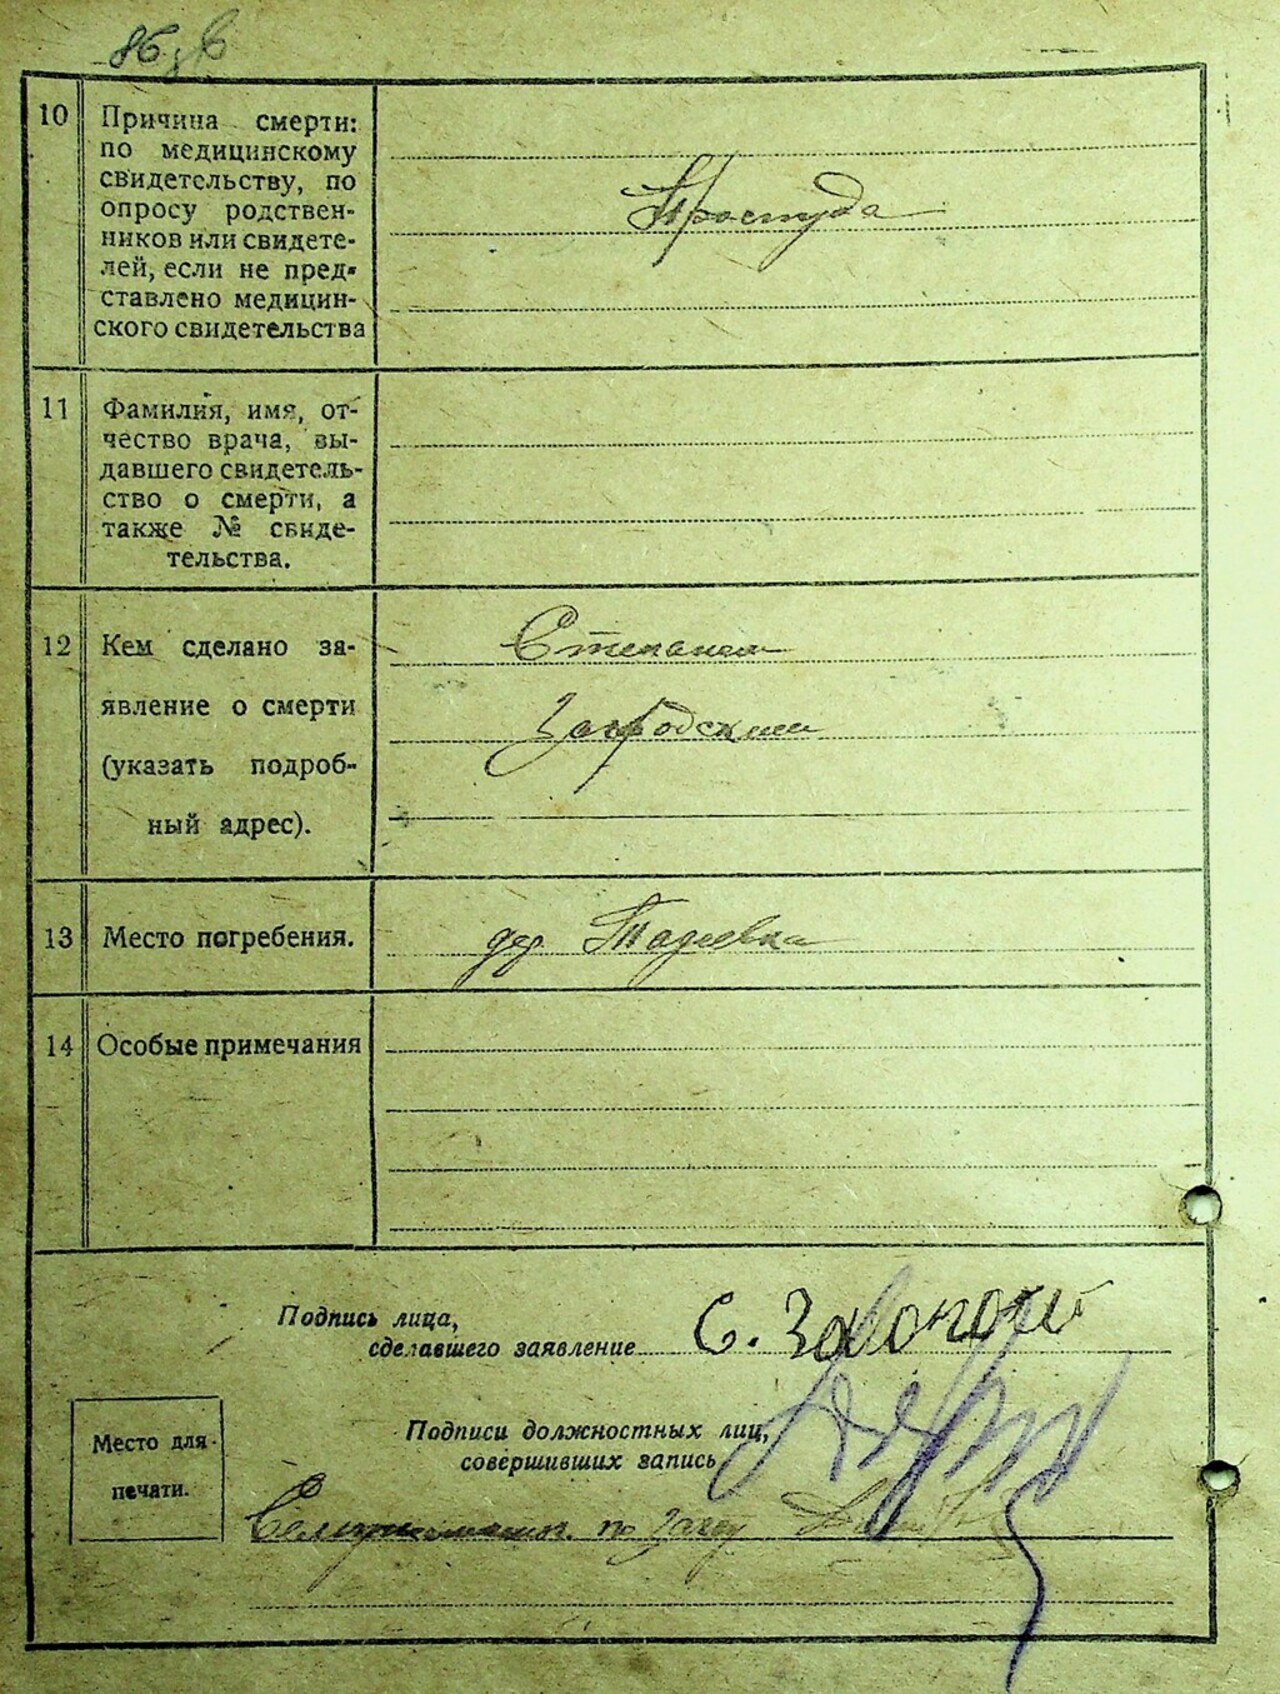 10
Причина смерти:
по медицинскому
свидетельству, по
опросу родствен-
ников или свидете-
лей, если не пред-
ставлено медицин-
ского свидетельства
Простуда
11
Фамилия, имя, от-
чество врача, вы-
давшего свидетель-
ство о смерти, а
также № свиде-
тельства.
12
Кем сделано за-
явление о смерти
(указать подроб-
ный адрес).
Степаном
Загродским
13
Место погребения.
дер. Тадеевка
14
Особые примечания
Подпись лица,
сделавшего заявление
С.
Подписи должностных лиц,
совершивших запись
Место для
печати.
по